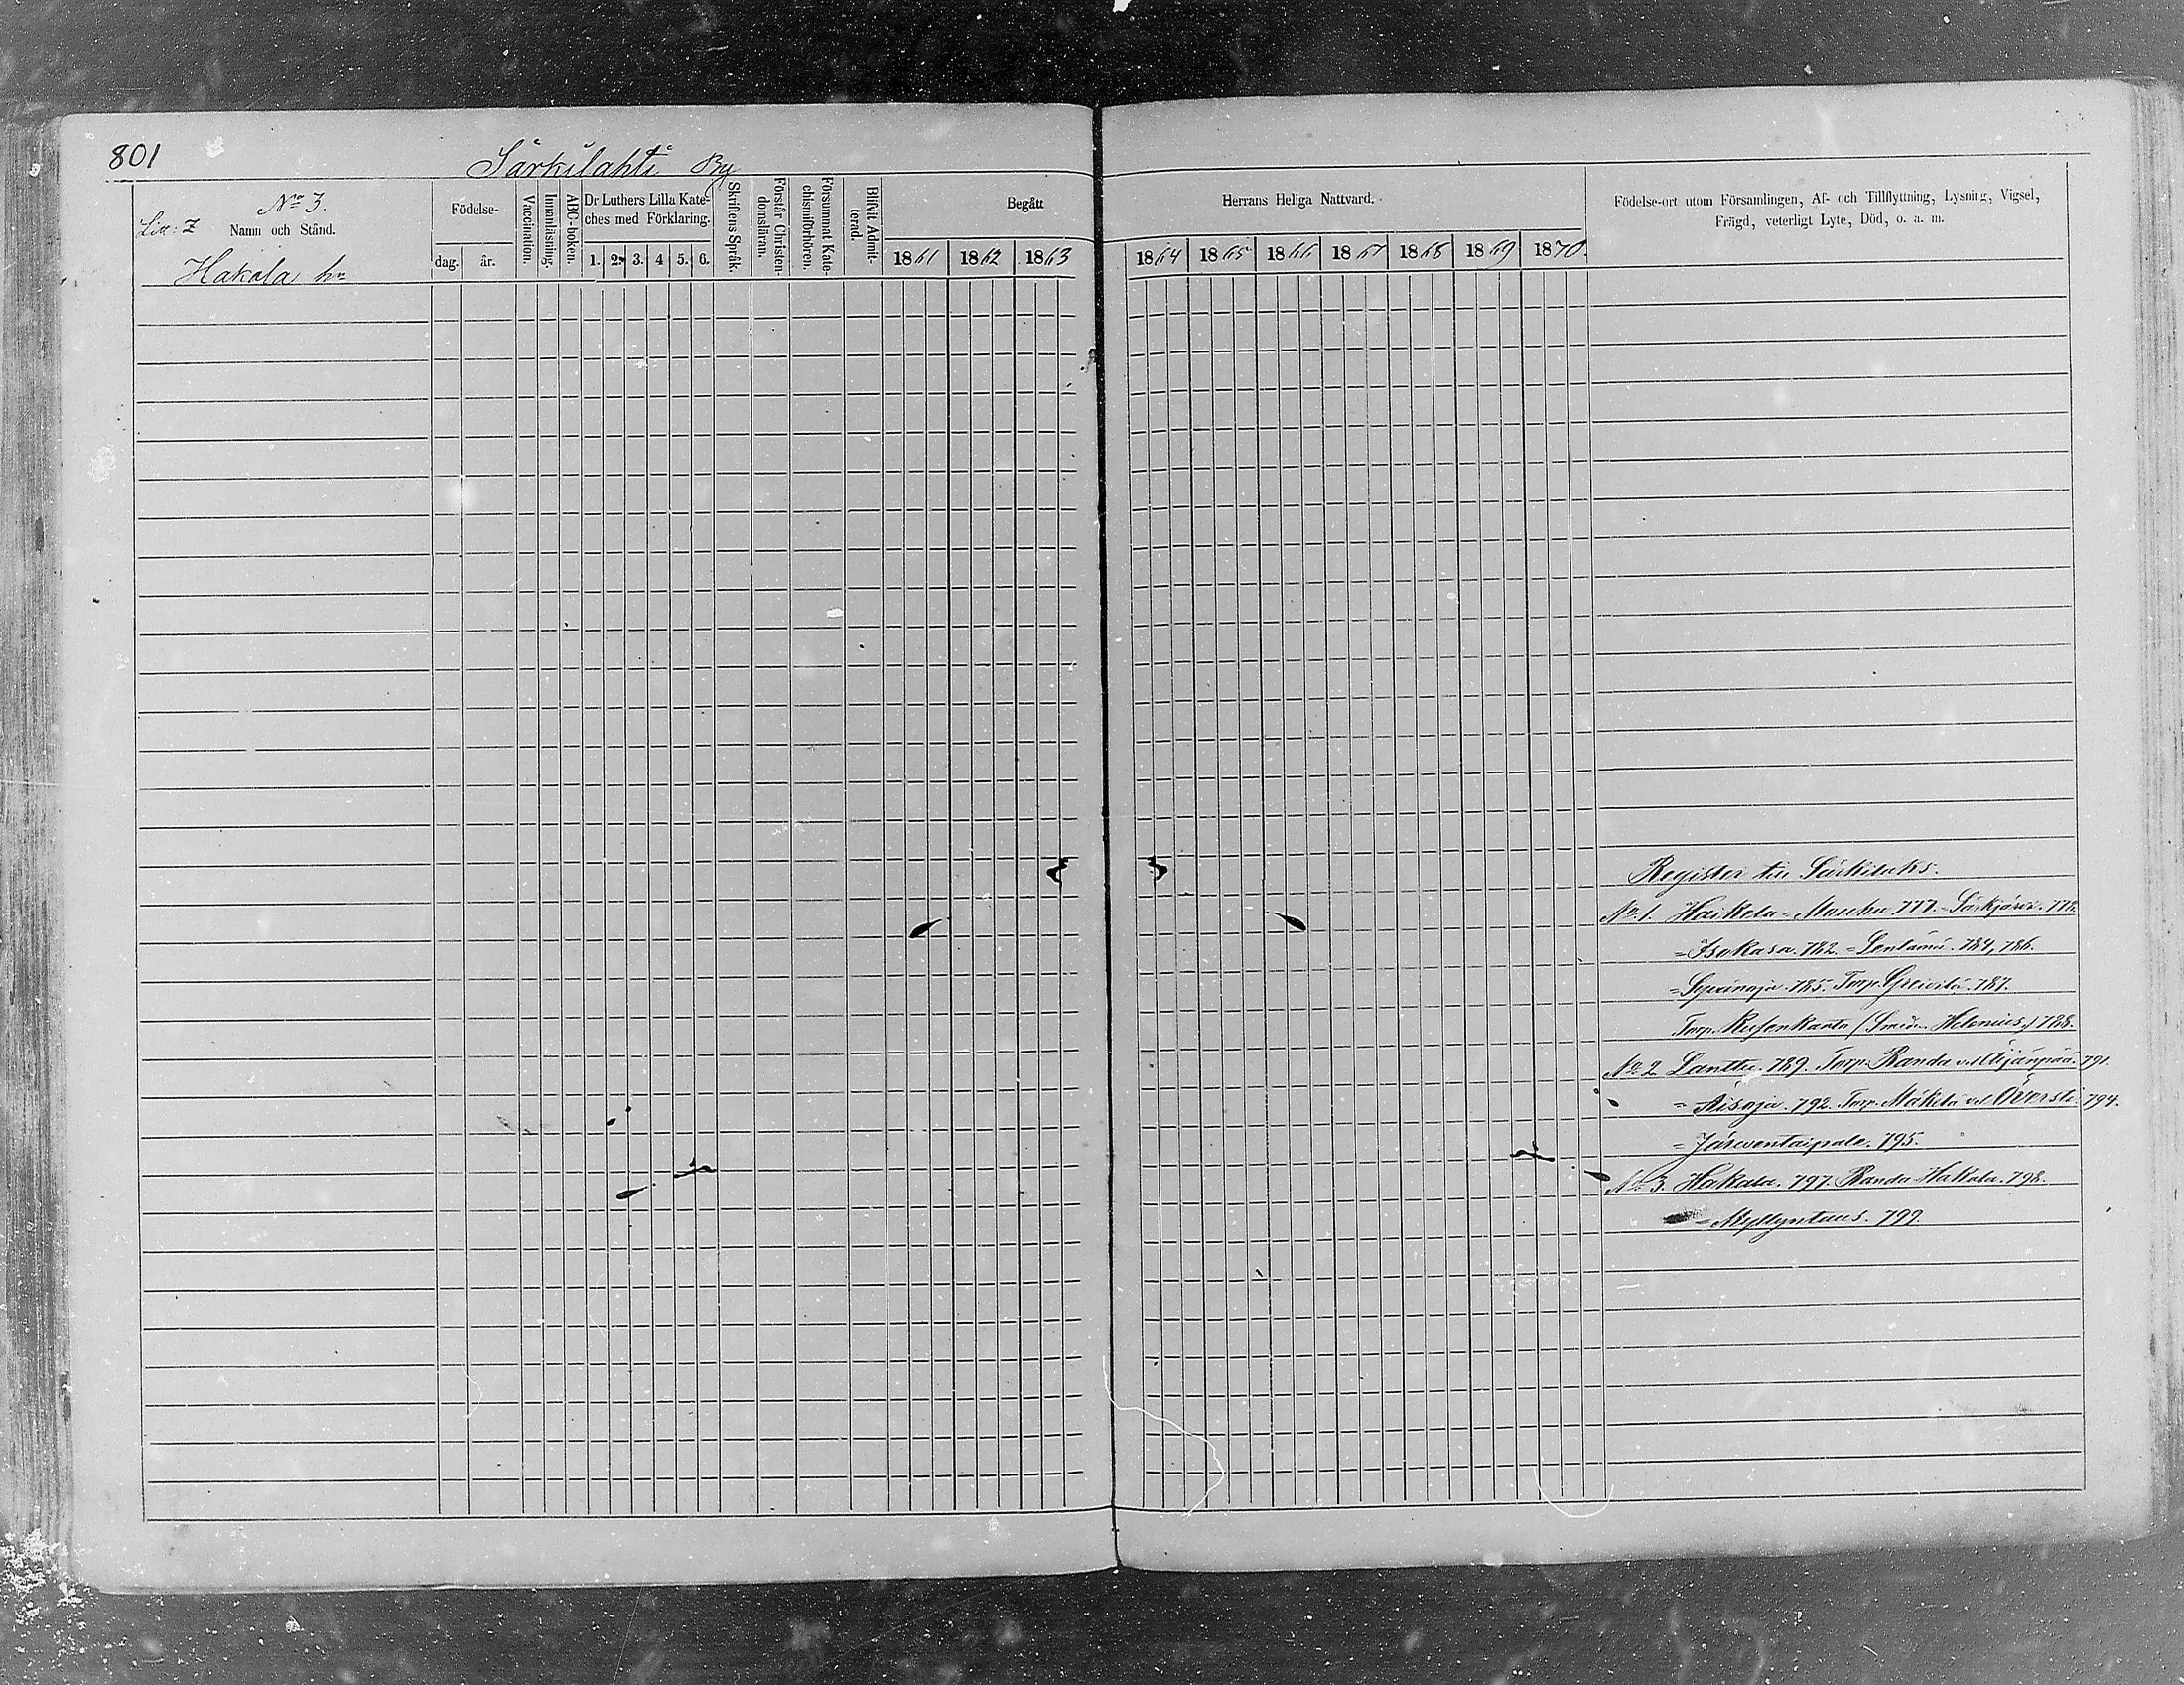 801
Särkilahti By
No 3.
Litt: Z
Namn och Stånd.
Hakala hn
Födelse-
dag. år.
Vaccination.
Innanläsning.
ABC-boken.
Dr Luthers Lilla Kate-
ches med Förklaring.
1. 2. 3. 4 5. 6.
Skriftens Språk.
Förstår Christen-
domsläran.
Försummat Kate-
chismiförhören.
Blifvit Admit-
terad.
Begått
1861 1862 1863
Herrans Heliga Nattvard.
1864 1865 1866 1867 1868 1869 1870.
Födelse-ort utom Församlingen, Af- och Tillflyttning, Lysning, Vigsel,
Frägd, veterligt Lyte, Död, o. a. m.
Register till Särkilaks.
No 1. Haikela = 777. = Särkjärvi. 778.
= Isokasa. 782. = 784, 786.
785. Torp. 787.
Torp. (Smeden Helenius) 788.
No 2 Lanttu. 789. Torp. Randa vel Äijänpää. 791.
= Aisoja. 792. Torp. Mäkelä vel Översti. 794.
= Järventaipale. 795.
No 3. Hakala. 797. Randa-Hakala. 798.
= Myllyntaus. 799.